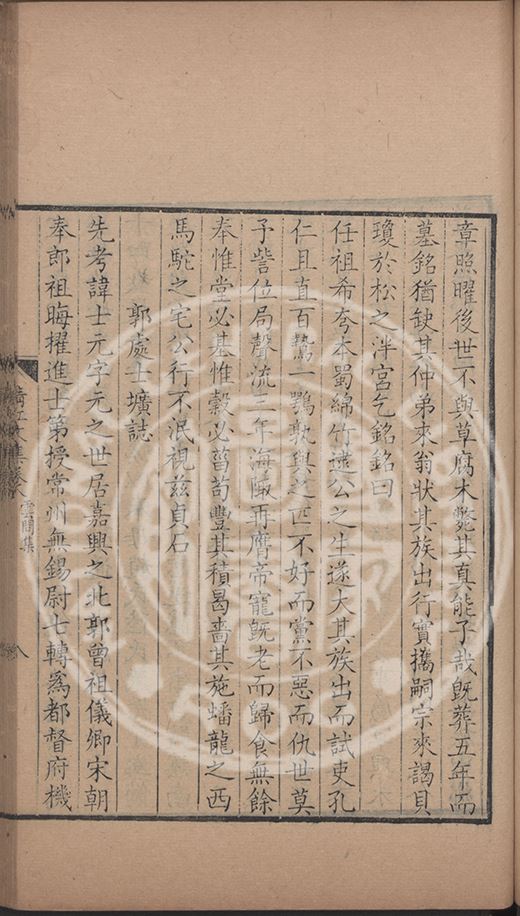 章照曜後世不與草腐木斃其真能子哉既葬五年而
墓銘猶缺其仲弟來翁狀其族出行實攜嗣宗來謁貝
瓊於松之泮宮乞銘銘曰
任祖希夸本蜀綿竹逮公之生遂大其族出而試吏孔
仁且直百鷙一鶚孰與之匹不好而黨不惡而仇世莫
予訾位局聲流三年海陬再膺帝寵既老而歸食無餘
奉惟堂必基惟穀必菑苟豐其積曷嗇其施蟠龍之西
馬駝之宅公行不泯視茲貞石
郭處士壙誌
先考諱士元字元之世居嘉興之北郭曾祖儀卿宋朝
奉郎祖晦擢進士第授常州無錫尉七轉爲都督府機
雲間集
八